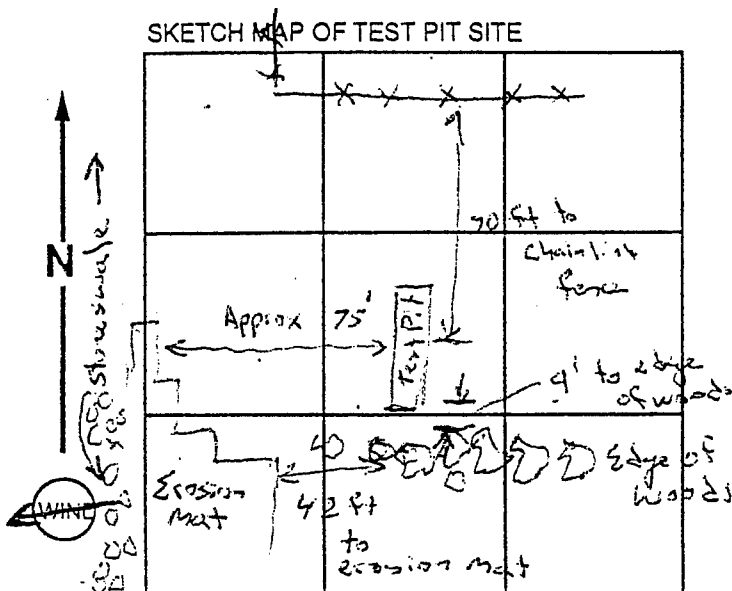 SKETCH MAP OF TEST PIT SITE
N
stoneswale
70 ft to
Chainlink
fence
Approx 75'
Test Pit
9' to edge
of woods
Edge of
woods
Erosion
mat
42 ft
to
erosion mat
WIND